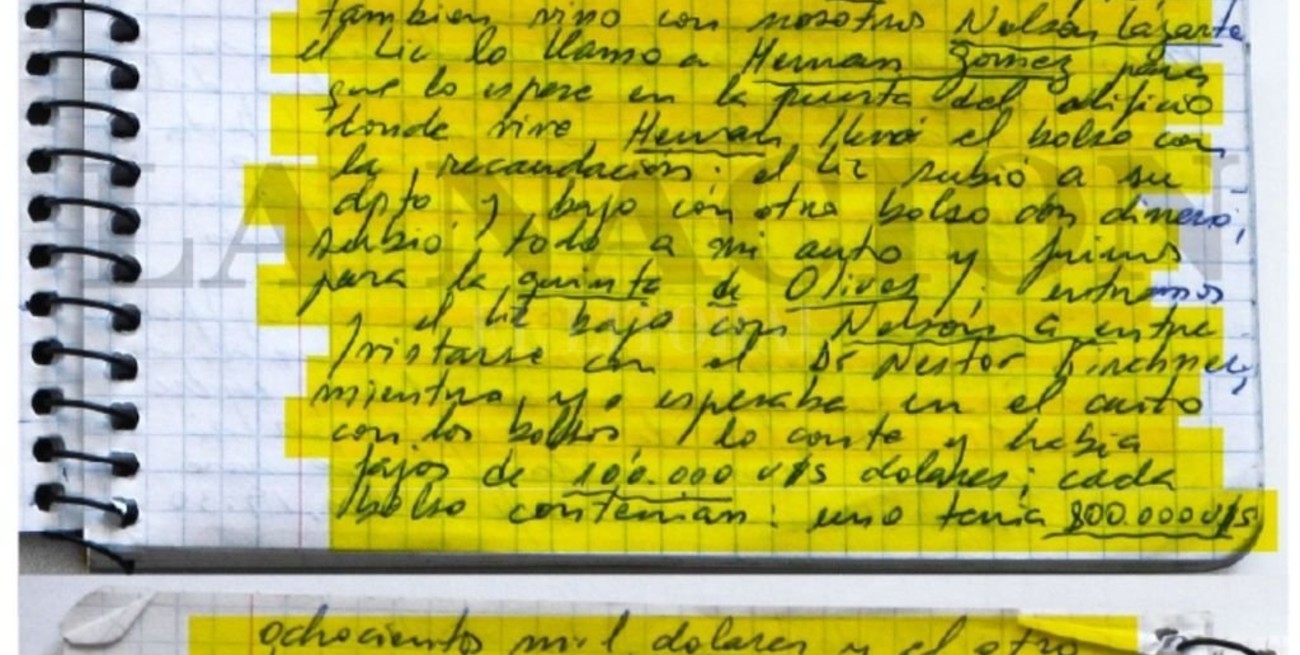 tambien vino con nosotros Nelson Lazarte
el Lic lo llamo a Hernan Gomez para
que lo espere en la puerta del edificio
donde vive Hernan llevó el bolso con
la recaudacion; el Lic subió a su
dpto y bajo con otro bolso con dinero;
subió todo a mi auto y fuimos
para la quinta de Olivos; entramos
y el Lic bajo con Nelson a entre
vistarse con el Dr Nestor Kirchner,
mientras yo esperaba en el auto
con los bolsos lo conte y habia
fajos de 100.000 U$S dolares; cada
bolso contenian: uno tenia 800.000 U$S
ochocientos mil dolares y el otro
LA NACION